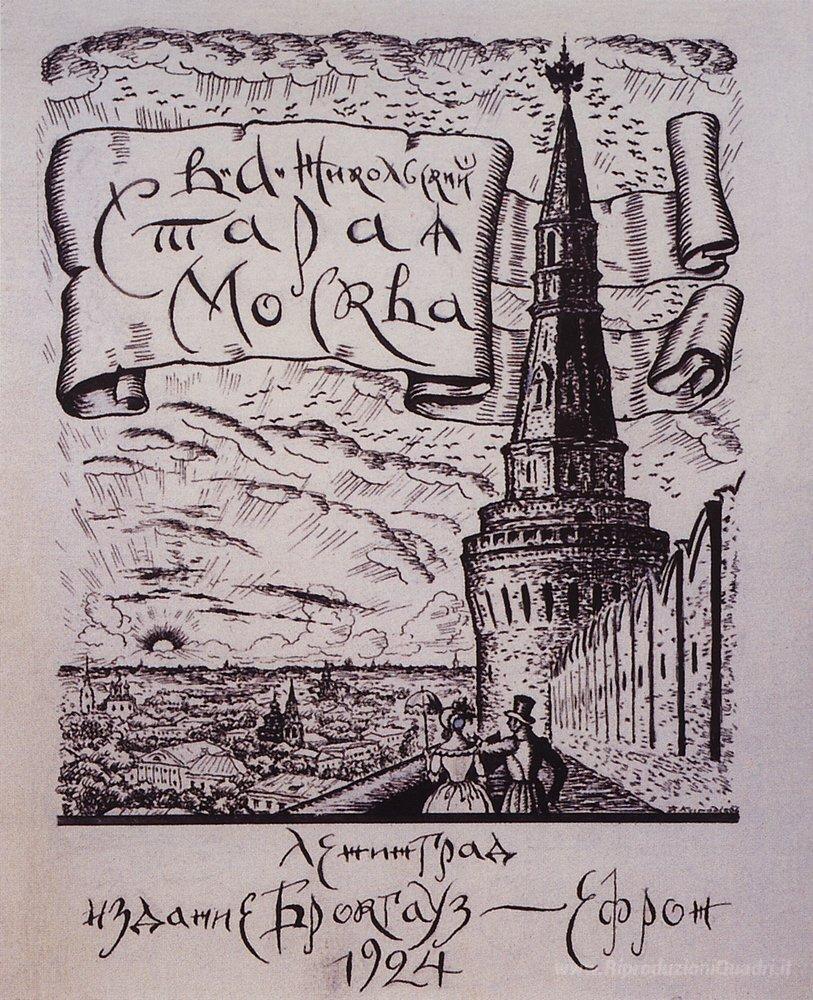 В. А. Никольский
Старая
Москва
Ленинград
издание Брокгауз — Ефрон
1924
www.RiproduzioniQuadri.it